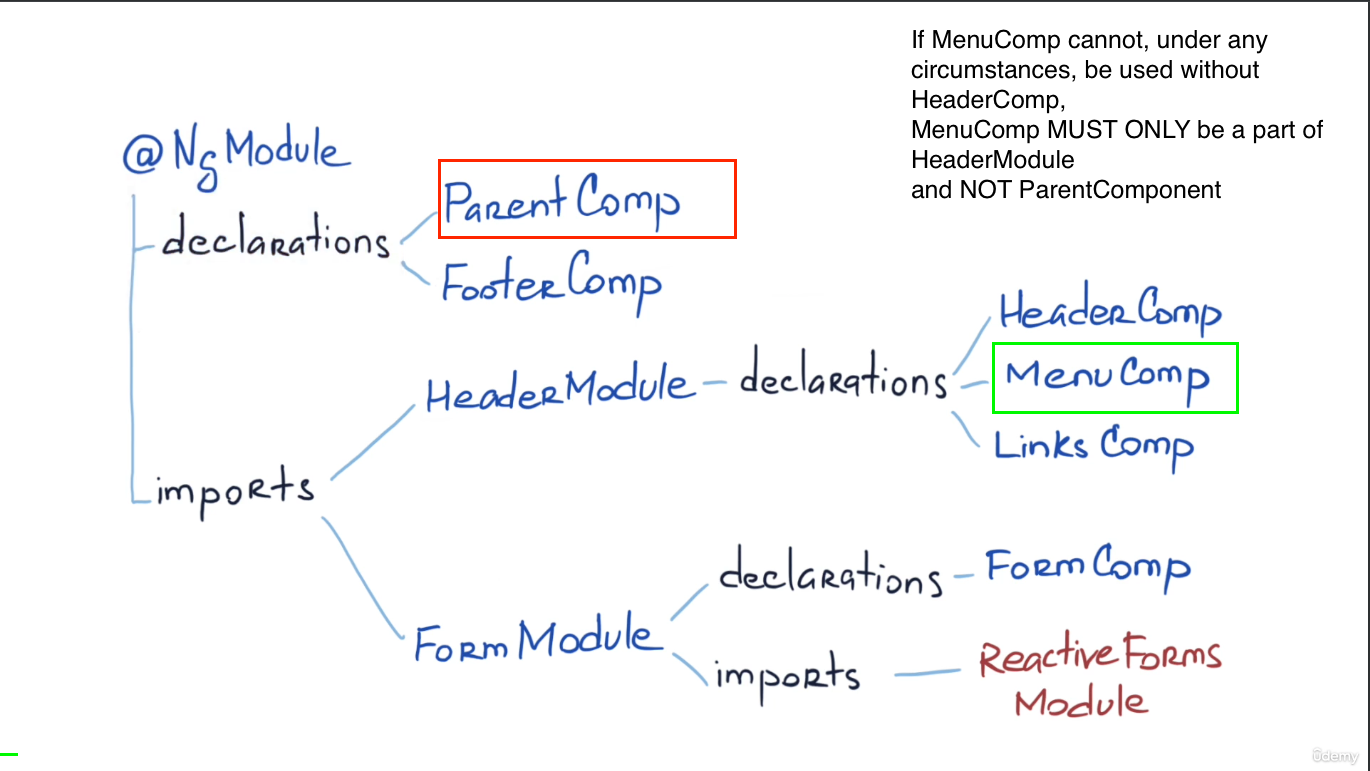 If MenuComp cannot, under any
circumstances, be used without
HeaderComp,
MenuComp MUST ONLY be a part of
HeaderModule
and NOT ParentComponent
@NgModule
declarations
ParentComp
FooterComp
imports
HeaderModule
declarations
HeaderComp
MenuComp
Links Comp
FormModule
declarations
FormComp
imports
ReactiveForms
Module
ûdemy